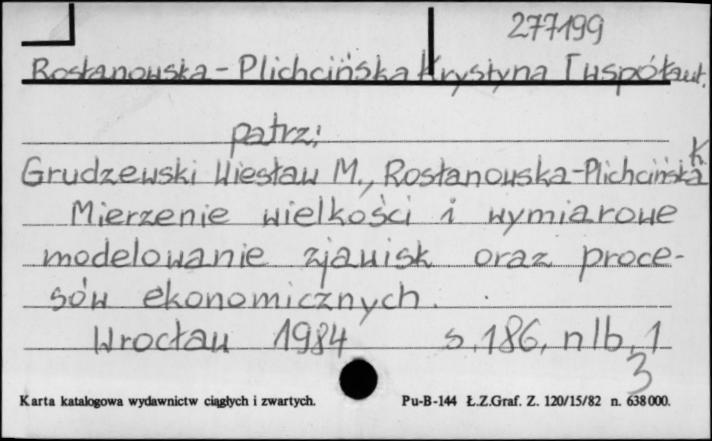 277199
Rosłanowska-Plichcińska Krystyna [współaut.
patrz:
Grudzewski Wiesław M., Rosłanowska-Plichcińska K
Mierzenie wielkości i wymiarowe
modelowanie zjawisk oraz proce-
sów ekonomicznych.
Wrocław 1984 s. 186, nlb. 1
3
Karta katalogowa wydawnictw ciągłych i zwartych. Pu-B-144 Ł.Z.Graf. Z. 120/15/82 n. 638000.